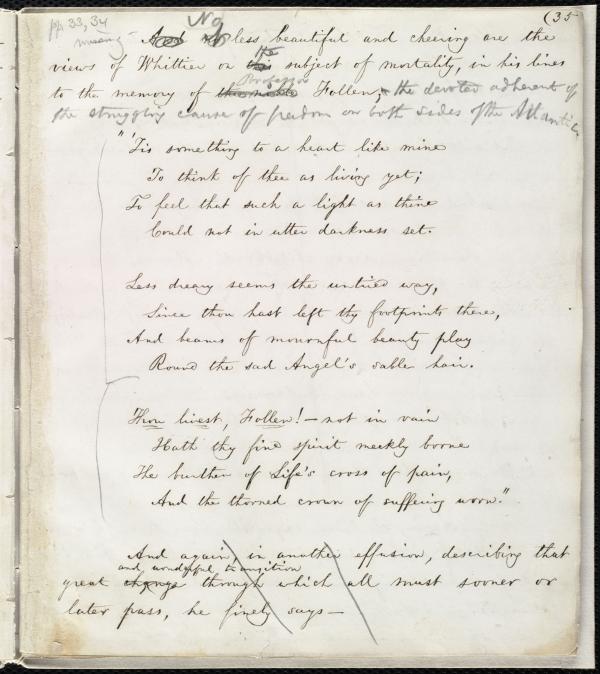 pp. 33, 34 (35
missing -
And no No less beautiful and cheering are the
views of Whittier on this the subject of mortality, in his lines
to the memory of the noble Professor Follen, the devoted adherent of
the struggling cause of freedom on both sides of the Atlantic.
"'Tis something to a heart like mine
To think of thee as living yet;
To feel that such a light as thine
Could not in utter darkness set.
Less dreary seems the untried way,
Since thou hast left thy footprints there,
And beams of mournful beauty play
Round the sad Angel's sable hair.
Thou livest, Follen! — not in vain
Hath thy fine spirit meekly borne
The burthen of Life's cross of pain,
And the thorned crown of suffering worn."
And again, in another effusion, describing that
great change and wonderful transition through which all must sooner or
later pass, he finely says —